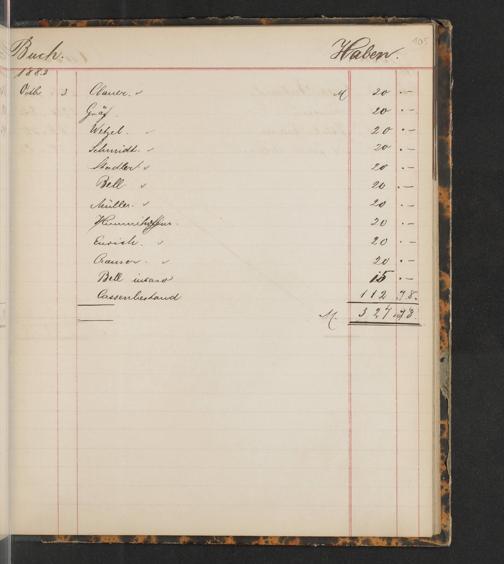 105
Buch. Haben.
1882
Octb 3 Clauer. M 20 . —
Gräf 20 . —
Wetzel. 20 . —
Schmidt. 20 . —
Stadler 20 . —
Bell 20 . —
Müller. 20 . —
20 . —
Emrich. 20 . —
20 . —
Bell 15 . —
Cassenbestand 112 78.
M. 327 78